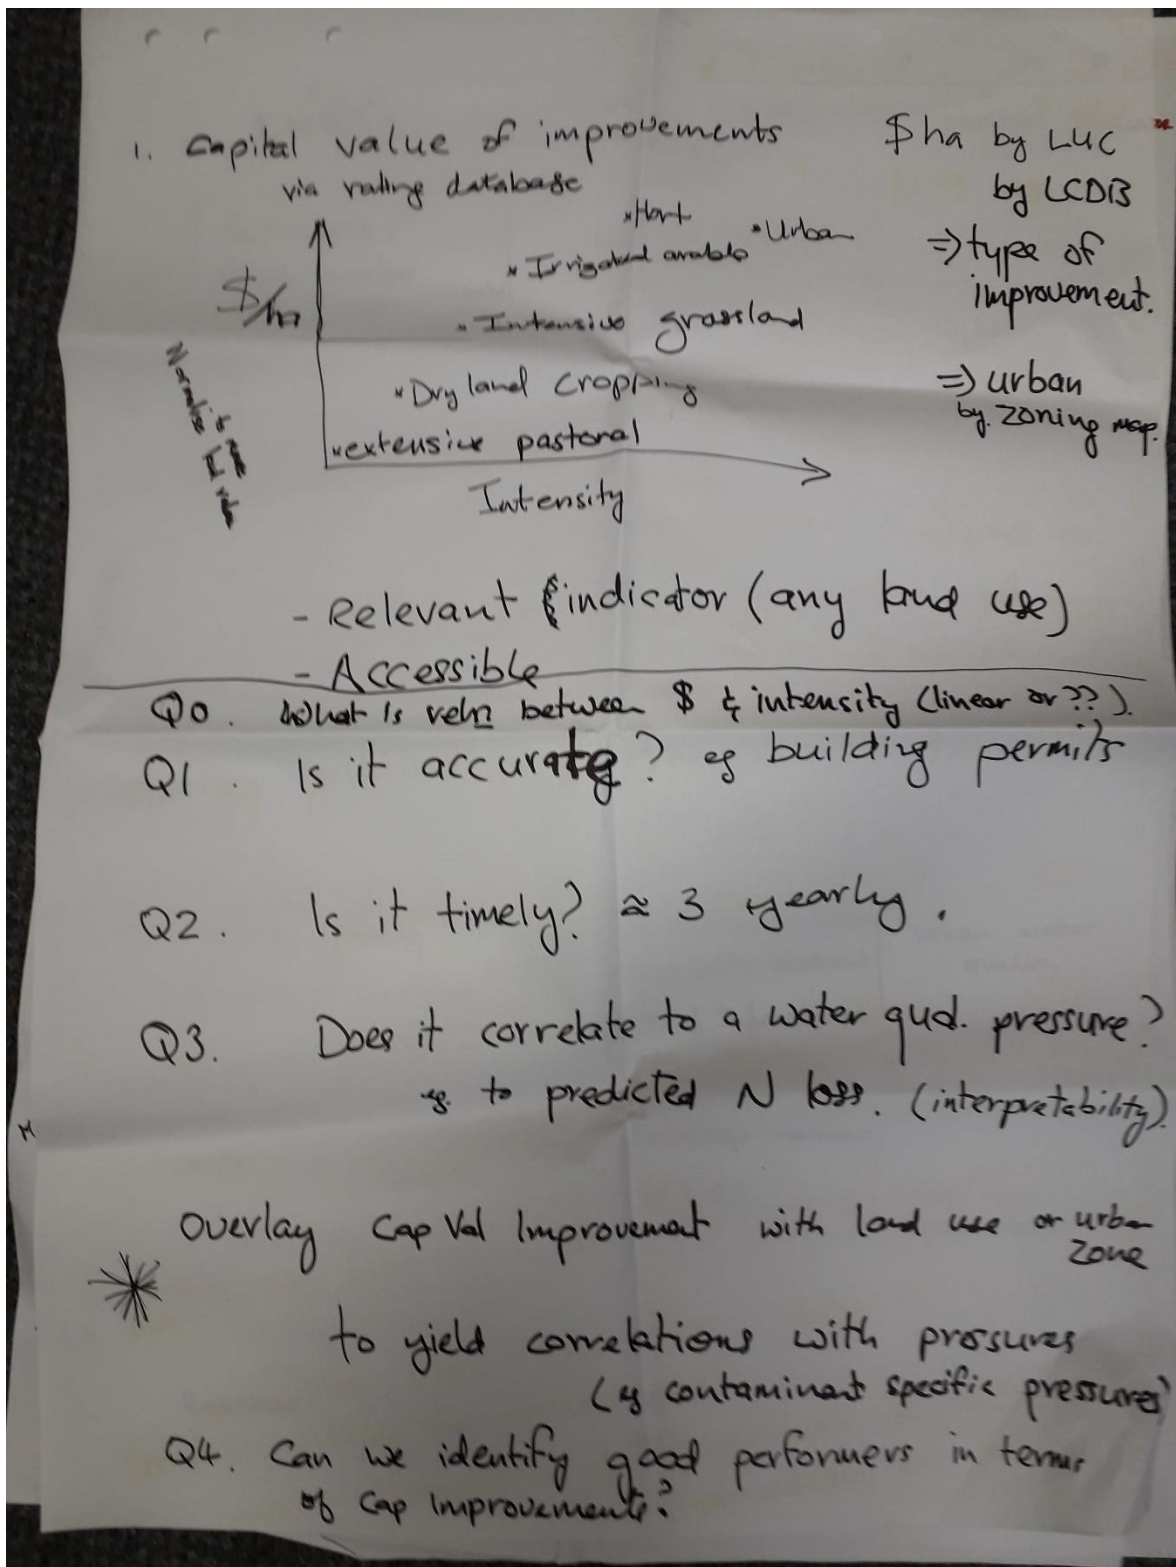 1. Capital value of improvements
via rating database
$ha by LUC
by LCDB
=> type of
improvement.
=> urban
by zoning map.
$/ha
Normalise
× Hort
× Urban
× Irrigated arable
× Intensive grassland
× Dry land cropping
× extensive pastoral
Intensity
- Relevant indicator (any land use)
- Accessible
Q0. What is reln between $ & intensity (linear or ??).
Q1. Is it accurate? eg building permits
Q2. Is it timely? ≈ 3 yearly.
Q3. Does it correlate to a water qual. pressure?
eg. to predicted N loss. (interpretability).
Overlay Cap Val Improvement with land use or urban
zone
to yield correlations with pressures
(eg contaminant specific pressures)
Q4. Can we identify good performers in terms
of Cap Improvements?